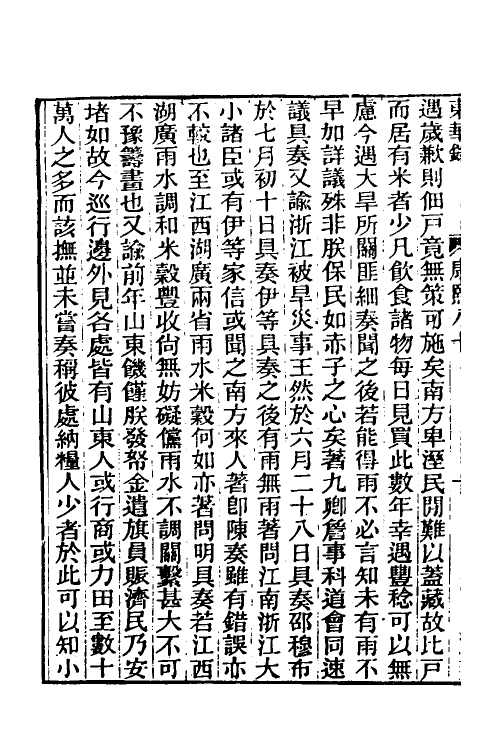 遇歲歉則佃戸竟無策可施矣南方卑溼民閒難以蓋藏故比戸
而居有米者少凡飲食諸物每日見買此數年幸遇豐稔可以無
慮今遇大旱所關匪細奏聞之後若能得雨不必言知未有雨不
早加詳議殊非朕保民如赤子之心矣著九卿詹事科道會同速
議具奏又諭浙江被旱災事王然於六月二十八日具奏邵穆布
於七月初十日具奏伊等具奏之後有雨無雨著問江南浙江大
小諸臣或有伊等家信或聞之南方來人著卽陳奏雖有錯誤亦
不較也至江西湖廣兩省雨水米穀何如亦著問明具奏若江西
湖廣雨水調和米穀豐收尙無妨礙儻雨水不調關繫甚大不可
不豫籌畫也又諭前年山東饑僅朕發帑金遣旗員賑濟民乃安
堵如故今巡行邊外見各處皆有山東人或行商或力田至數十
萬人之多而該撫並未嘗奏稱彼處納糧人少者於此可以知小